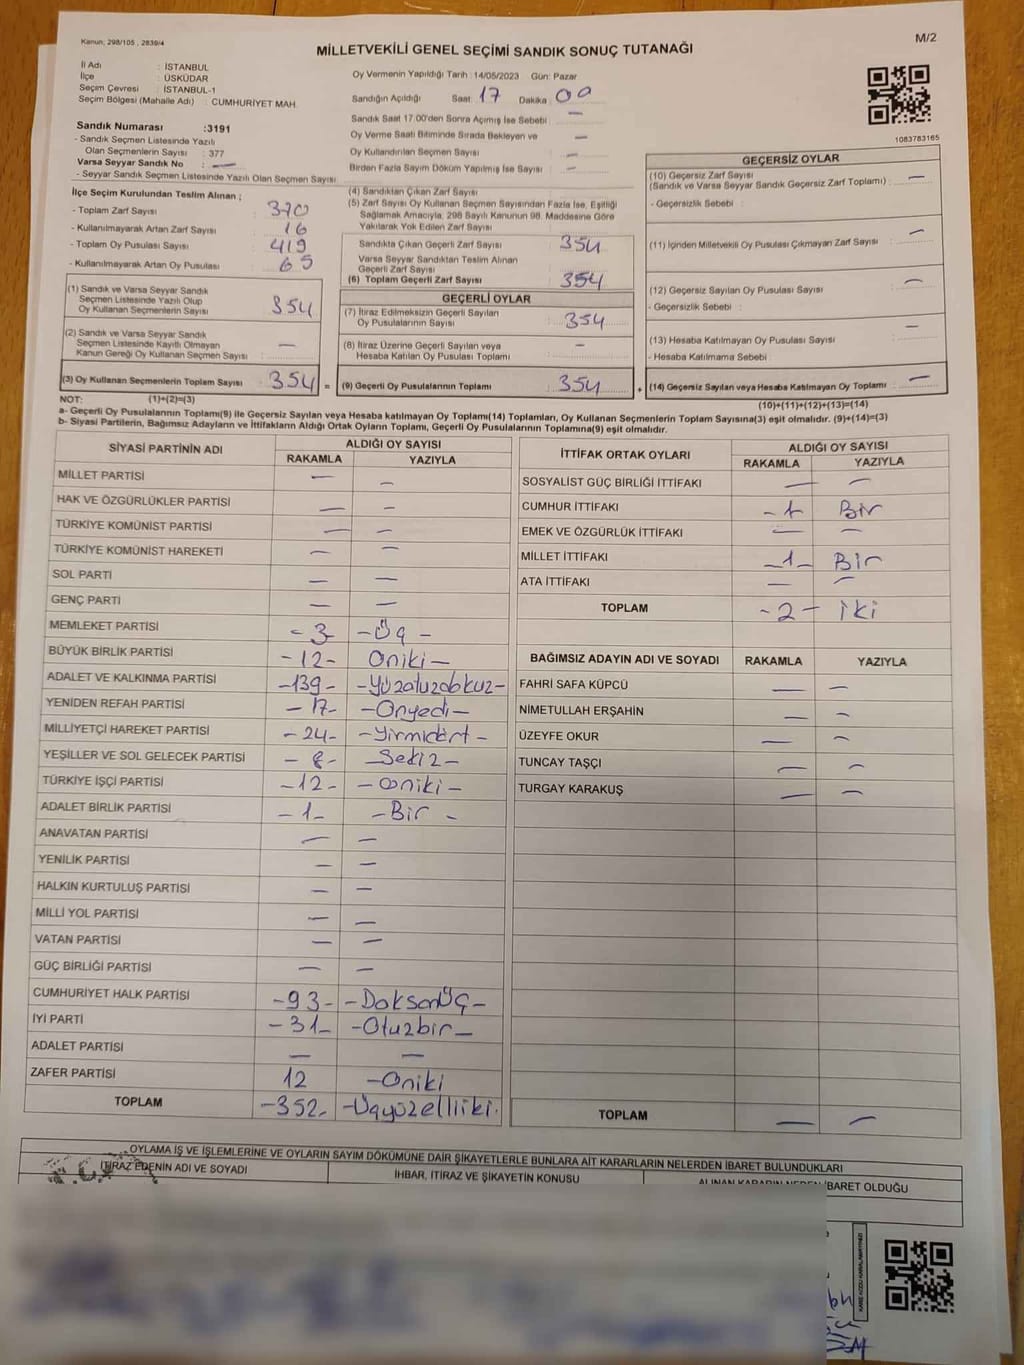 Kanun; 298/105 , 2839/4
M/2
MİLLETVEKİLİ GENEL SEÇİMİ SANDIK SONUÇ TUTANAĞI
İl Adı : İSTANBUL
İlçe : ÜSKÜDAR
Seçim Çevresi : İSTANBUL-1
Seçim Bölgesi (Mahalle Adı) : CUMHURİYET MAH.
Sandık Numarası :3191
- Sandık Seçmen Listesinde Yazılı
Olan Seçmenlerin Sayısı : 377
Varsa Seyyar Sandık No : —
- Seyyar Sandık Seçmen Listesinde Yazılı Olan Seçmen Sayısı
Oy Vermenin Yapıldığı Tarih : 14/05/2023 Gün: Pazar
Sandığın Açıldığı Saat: 17 Dakika: 00
Sandık Saat 17:00'den Sonra Açımış İse Sebebi : —
Oy Verme Saati Bitiminde Sırada Bekleyen ve —
Oy Kullandırılan Seçmen Sayısı : —
Birden Fazla Sayım Döküm Yapılmış İse Sayısı : —
1083783165
İlçe Seçim Kurulundan Teslim Alınan ;
- Toplam Zarf Sayısı : 370
- Kullanılmayarak Artan Zarf Sayısı : 16
- Toplam Oy Pusulası Sayısı : 419
- Kullanılmayarak Artan Oy Pusulası : 65
(1) Sandık ve Varsa Seyyar Sandık
Seçmen Listesinde Yazılı Olup
Oy Kullanan Seçmenlerin Sayısı : 354
(2) Sandık ve Varsa Seyyar Sandık
Seçmen Listesinde Kayıtlı Olmayan
Kanun Gereği Oy Kullanan Seçmen Sayısı : —
(3) Oy Kullanan Seçmenlerin Toplam Sayısı : 354 =
(4) Sandıktan Çıkan Zarf Sayısı :
(5) Zarf Sayısı Oy Kullanan Seçmen Sayısından Fazla İse, Eşitliği
Sağlamak Amacıyla, 298 Sayılı Kanunun 98. Maddesine Göre
Yakılarak Yok Edilen Zarf Sayısı :
Sandıkta Çıkan Geçerli Zarf Sayısı : 354
Varsa Seyyar Sandıktan Teslim Alınan
Geçerli Zarf Sayısı :
(6) Toplam Geçerli Zarf Sayısı : 354
GEÇERLİ OYLAR
(7) İtiraz Edilmeksizin Geçerli Sayılan
Oy Pusulalarının Sayısı : 354
(8) İtiraz Üzerine Geçerli Sayılan veya
Hesaba Katılan Oy Pusulası Toplamı : —
(9) Geçerli Oy Pusulalarının Toplamı : 354 +
GEÇERSİZ OYLAR
(10) Geçersiz Zarf Sayısı
(Sandık ve Varsa Seyyar Sandık Geçersiz Zarf Toplamı) : —
- Geçersizlik Sebebi :
(11) İçinden Milletvekili Oy Pusulası Çıkmayan Zarf Sayısı : —
(12) Geçersiz Sayılan Oy Pusulası Sayısı : —
- Geçersizlik Sebebi :
(13) Hesaba Katılmayan Oy Pusulası Sayısı : —
- Hesaba Katılmama Sebebi :
(14) Geçersiz Sayılan veya Hesaba Katılmayan Oy Toplamı : —
NOT: (1)+(2)=(3)
(10)+(11)+(12)+(13)=(14)
a- Geçerli Oy Pusulalarının Toplamı(9) ile Geçersiz Sayılan veya Hesaba katılmayan Oy Toplamı(14) Toplamları, Oy Kullanan Seçmenlerin Toplam Sayısına(3) eşit olmalıdır. (9)+(14)=(3)
b- Siyasi Partilerin, Bağımsız Adayların ve İttifakların Aldığı Ortak Oyların Toplamı, Geçerli Oy Pusulalarının Toplamına(9) eşit olmalıdır.
SİYASİ PARTİNİN ADI ALDIĞI OY SAYISI
RAKAMLA YAZIYLA
MİLLET PARTİSİ — —
HAK VE ÖZGÜRLÜKLER PARTİSİ — —
TÜRKİYE KOMÜNİST PARTİSİ — —
TÜRKİYE KOMÜNİST HAREKETİ — —
SOL PARTİ — —
GENÇ PARTİ — —
MEMLEKET PARTİSİ -3- -Üç -
BÜYÜK BİRLİK PARTİSİ -12- Oniki-
ADALET VE KALKINMA PARTİSİ -139- -Yüzotuzdokuz-
YENİDEN REFAH PARTİSİ -17- -Onyedi-
MİLLİYETÇİ HAREKET PARTİSİ -24- -Yirmidört-
YEŞİLLER VE SOL GELECEK PARTİSİ -8- Sekiz-
TÜRKİYE İŞÇİ PARTİSİ -12- -Oniki-
ADALET BİRLİK PARTİSİ -1- -Bir -
ANAVATAN PARTİSİ — —
YENİLİK PARTİSİ — —
HALKIN KURTULUŞ PARTİSİ — —
MİLLİ YOL PARTİSİ — —
VATAN PARTİSİ — —
GÜÇ BİRLİĞİ PARTİSİ — —
CUMHURİYET HALK PARTİSİ -93- -DoksanÜç-
İYİ PARTİ -31- -Otuzbir-
ADALET PARTİSİ — —
ZAFER PARTİSİ 12 -Oniki
TOPLAM -352- -Üçyüzelliiki.
İTTİFAK ORTAK OYLARI ALDIĞI OY SAYISI
RAKAMLA YAZIYLA
SOSYALİST GÜÇ BİRLİĞİ İTTİFAKI — —
CUMHUR İTTİFAKI -1 Bir
EMEK VE ÖZGÜRLÜK İTTİFAKI — —
MİLLET İTTİFAKI -1- Bir
ATA İTTİFAKI — —
TOPLAM -2- iki
BAĞIMSIZ ADAYIN ADI VE SOYADI RAKAMLA YAZIYLA
FAHRİ SAFA KÜPCÜ — —
NİMETULLAH ERŞAHİN — —
ÜZEYFE OKUR — —
TUNCAY TAŞÇI — —
TURGAY KARAKUŞ — —
TOPLAM — —
OYLAMA İŞ VE İŞLEMLERİNE VE OYLARIN SAYIM DÖKÜMÜNE DAİR ŞİKAYETLERLE BUNLARA AİT KARARLARIN NELERDEN İBARET BULUNDUKLARI
İTİRAZ EDENİN ADI VE SOYADI İHBAR, İTİRAZ VE ŞİKAYETİN KONUSU ALINAN KARARIN NEDEN İBARET OLDUĞU
KARE KODU KARALAMAYINIZ!